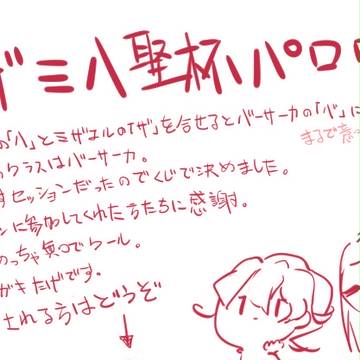 ザミハ聖杯ハパロ
の「ハ」とミザエルの「ザ」を合せるとバーサーカの「バ」に
まるで意
クラスはバーサーカ。
セッションだったのでくじで決めました。
ンに参加してくれた方たちに感謝。
めっちゃ クール。
がきたげです。
される方はどうぞ